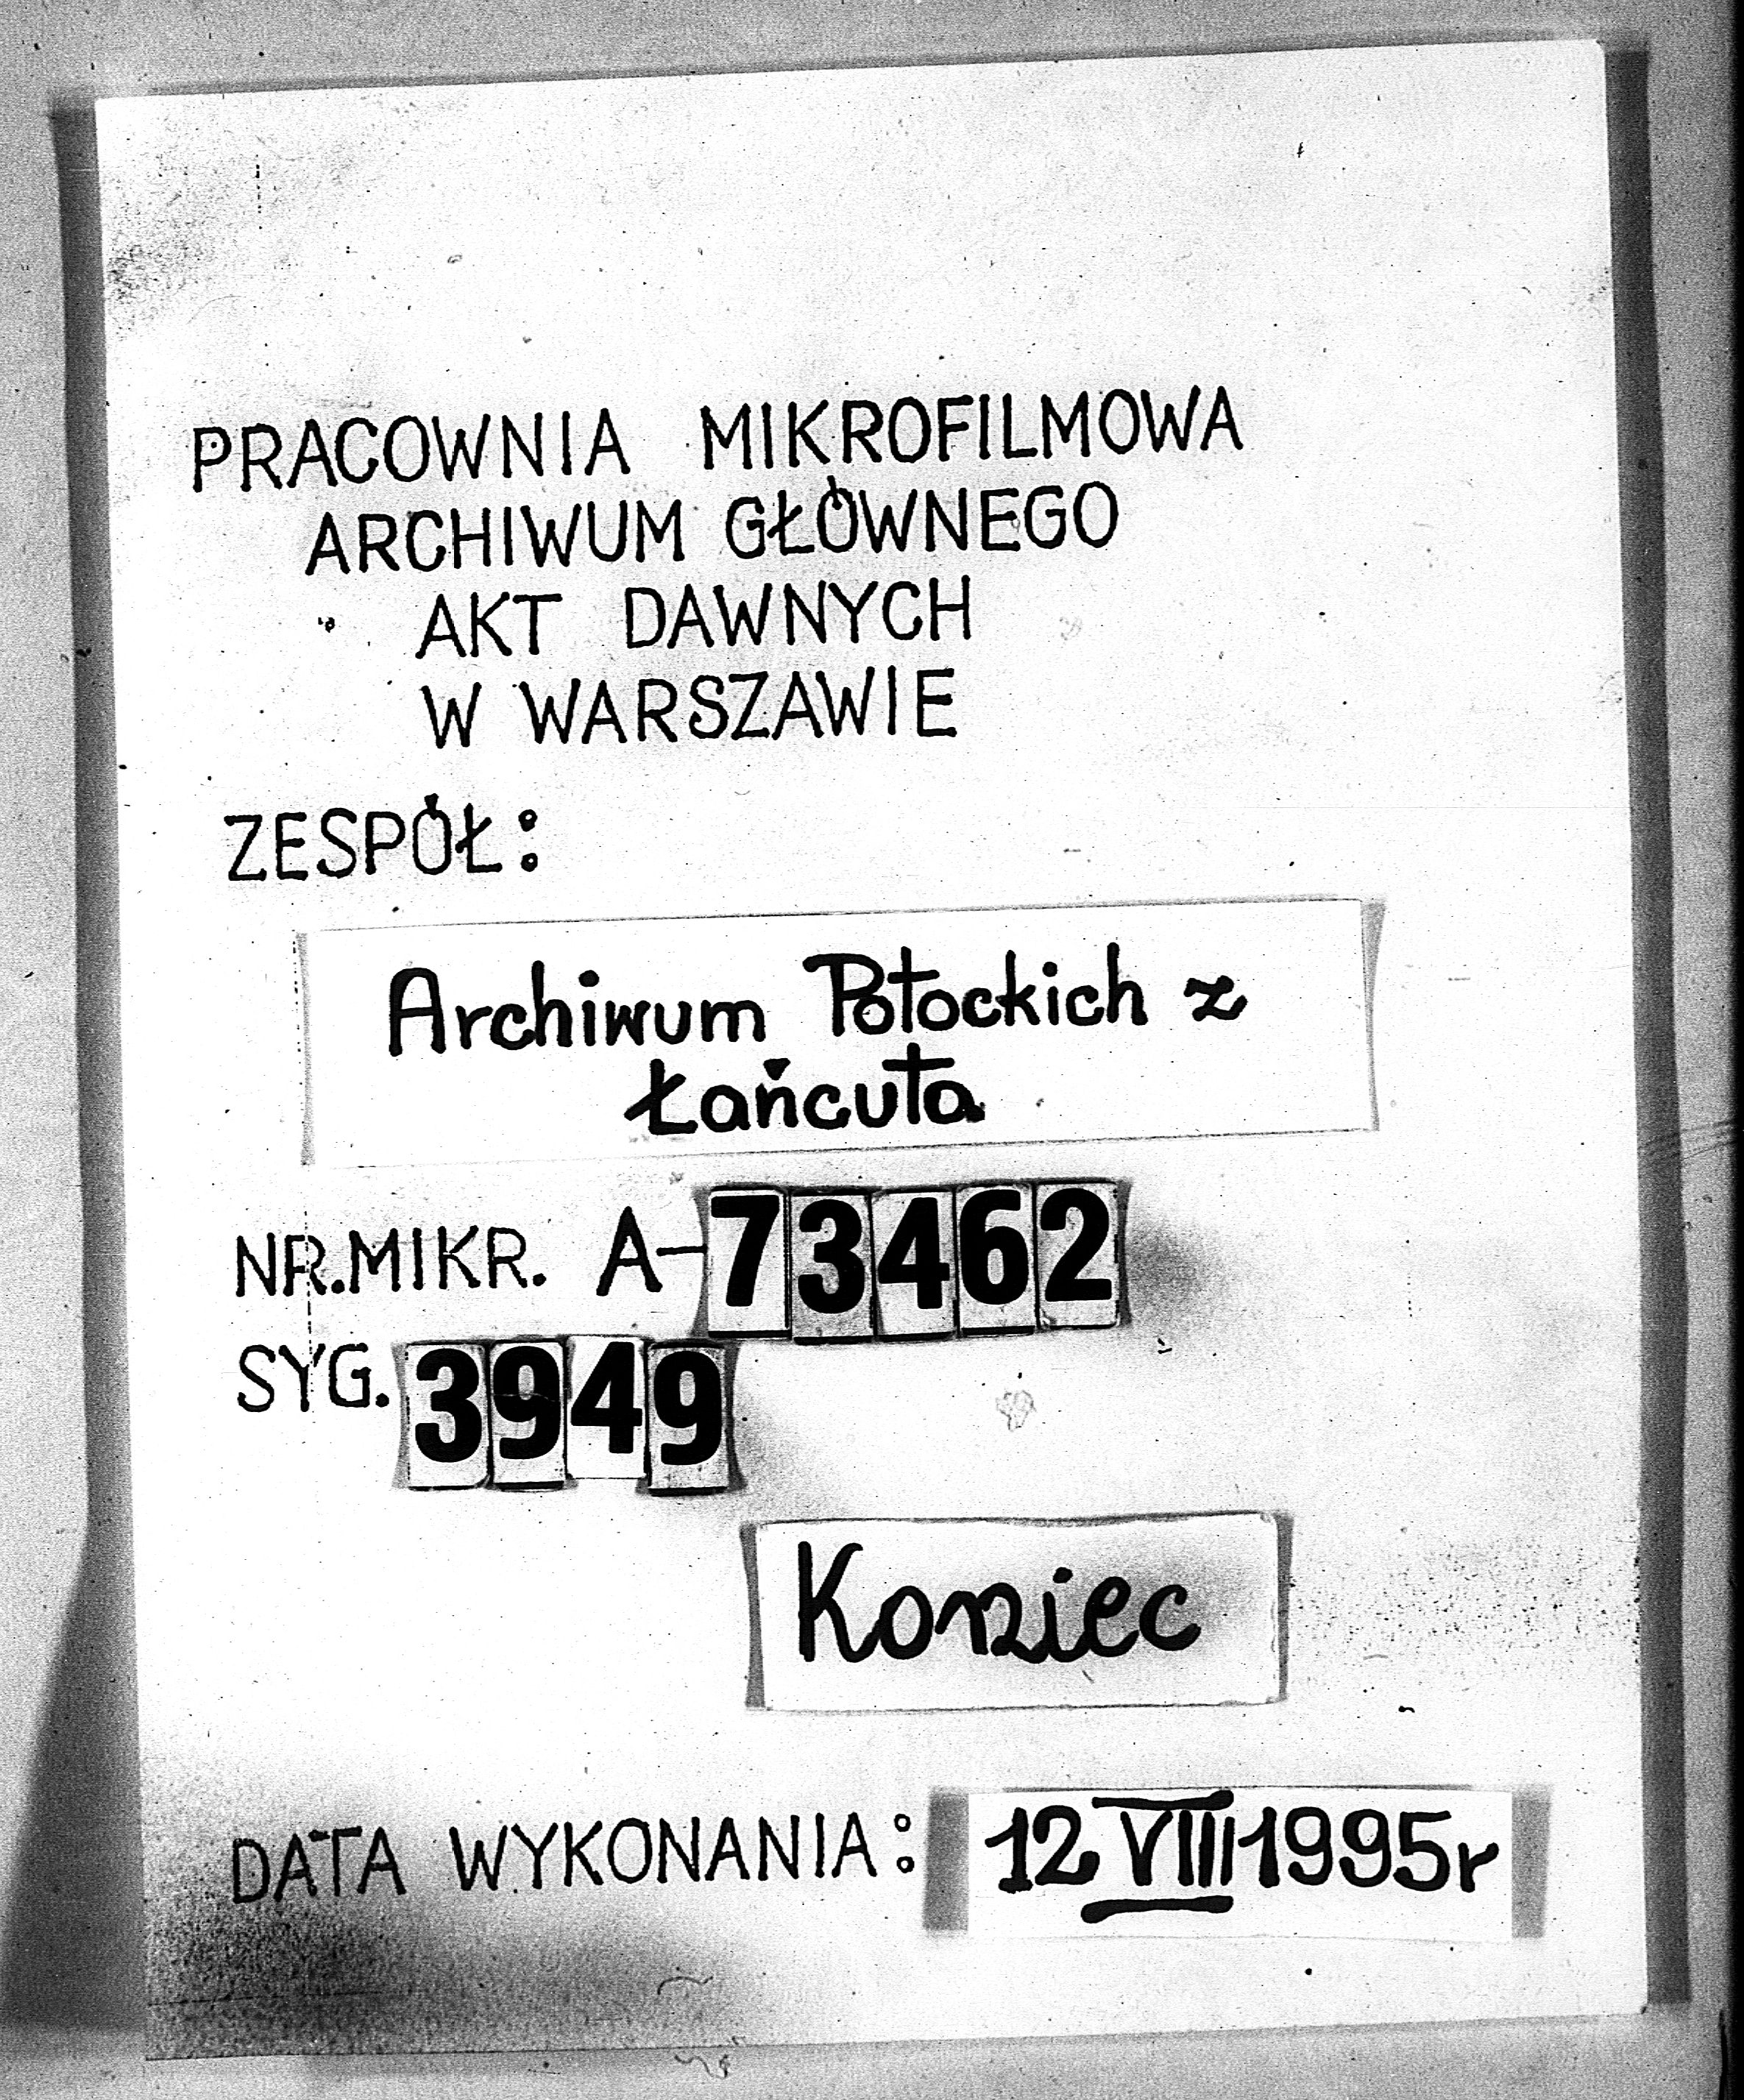 PRACOWNIA MIKROFILMOWA
ARCHIWUM GŁÓWNEGO
AKT DAWNYCH
W WARSZAWIE
ZESPÓŁ:
Archiwum Potockich z
Łańcuta
NR.MIKR. A-73462
SYG. 3949
Koniec
DATA WYKONANIA: 12 VIII 1995r